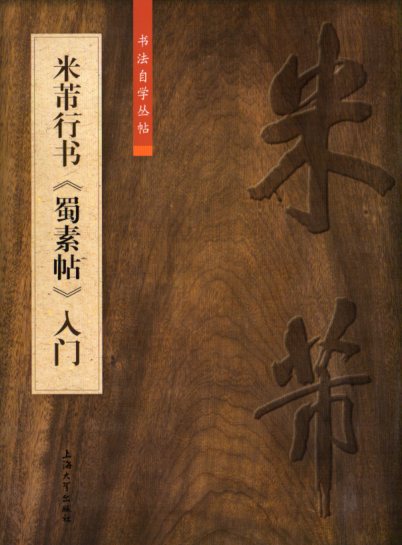 书法自学丛帖
米芾行书《蜀素帖》入门
米芾
上海大学出版社